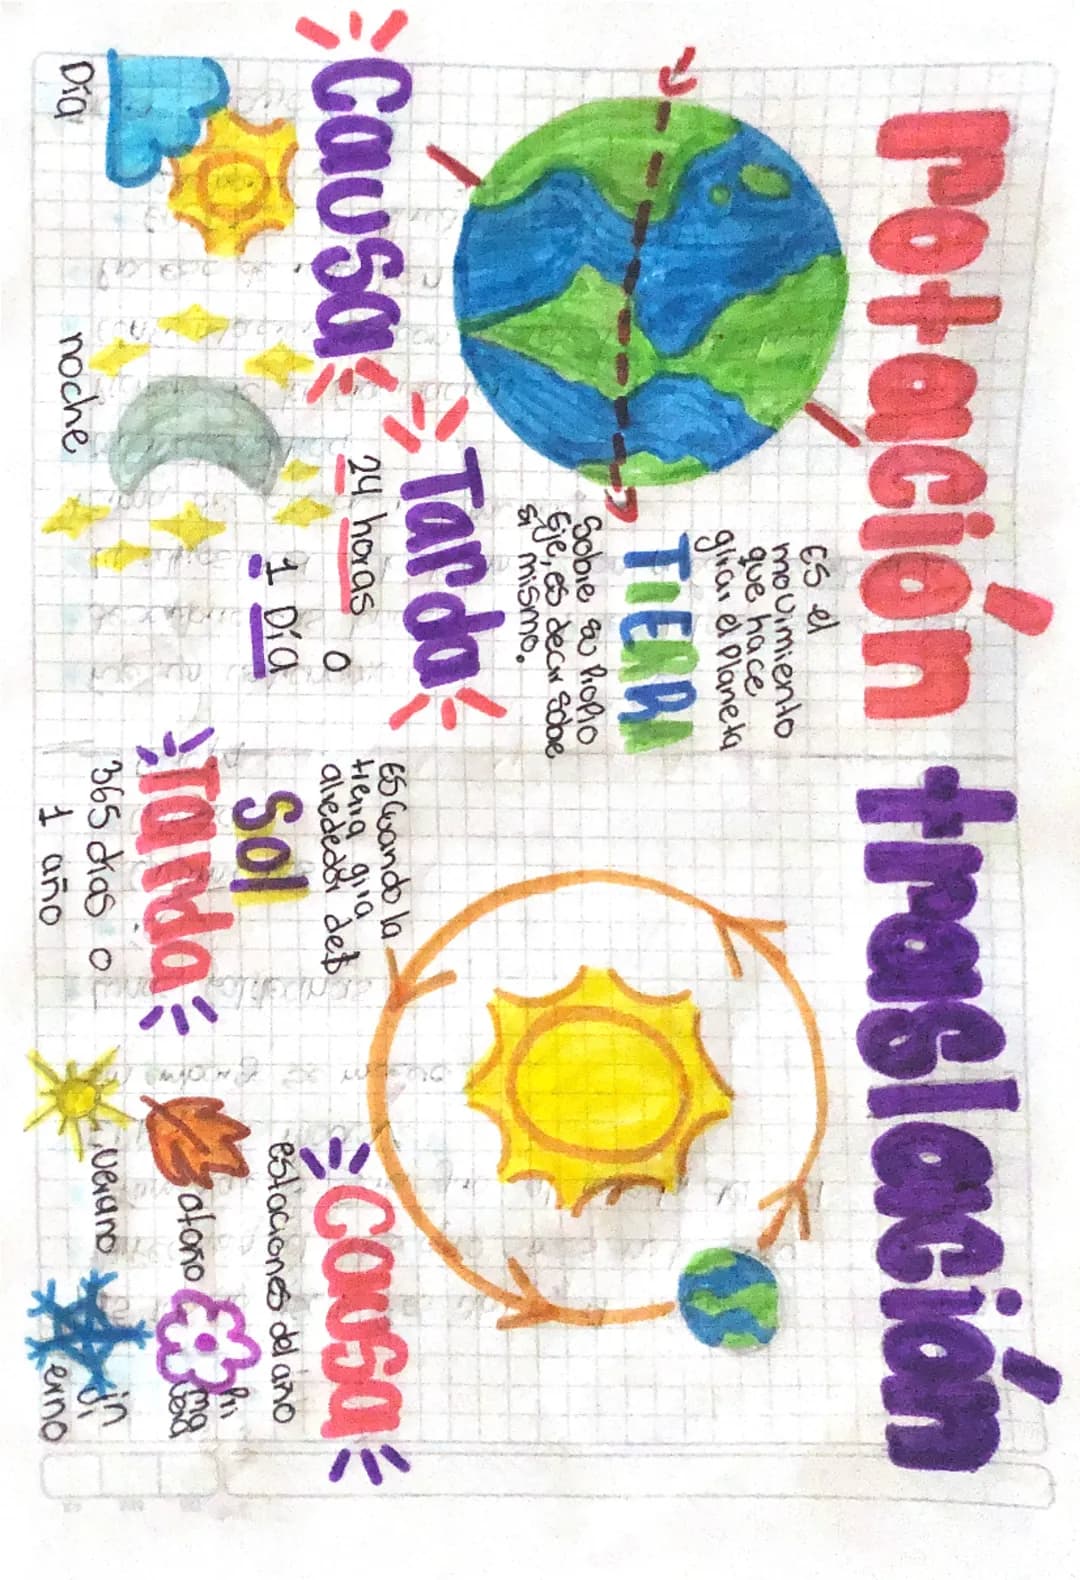 rotación
Es el
movimiento
que hace
girar el Planeta
TIERRA
Sobre su Propio
Eje, es decir sobre
si mismo.
Tarda
24 horas
o
1 Día
Causa
Día
noche
traslación
Es Cuando la
tierra gira
alrededor del
Sol
Tarda
365 días o
1 año
Causa
estaciones del año
otoño
Pri
ma
vera
verano
in
vi
erno